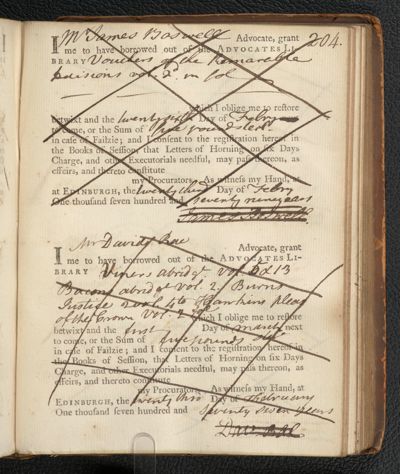 204.
I Mr James Boswell Advocate, grant
me to have borrowed out of the ADVOCATES LI-
BRARY Vouchers of the Remarkable
Decisions vol. 2d. in fol
which I oblige me to restore
betwixt and the Day of Febry
to come, or the Sum of five pounds sterl.
in case of Failzie; and I consent to the registration hereof in
the Books of Session, that Letters of Horning on six Days
Charge, and other Executorials needful, may pass thereon, as
effeirs, and thereto constitute
my Procurators. As witness my Hand, at
at EDINBURGH, the twenty third Day of Febry
One thousand seven hundred and seventy
James Boswell
I Mr David Rae Advocate, grant
me to have borrowed out of the ADVOCATES LI-
BRARY Viners abridgt. vol. & 13
Bacons abridgt vol. 2. Burns
Justice 2 vol. 4to Hawkins pleas
of the Crown vol. 2d which I oblige me to restore
betwixt and the first Day of March next
to come, or the Sum of five pounds
in case of Failzie; and I consent to the registration hereof in
the Books of Session, that Letters of Horning on six Days
Charge, and other Executorials needful, may pass thereon, as
effeirs, and thereto constitute
my Procurators. As witness my Hand, at
EDINBURGH, the twenty two Day of February
One thousand seven hundred and seventy seven years
Dav: Rae